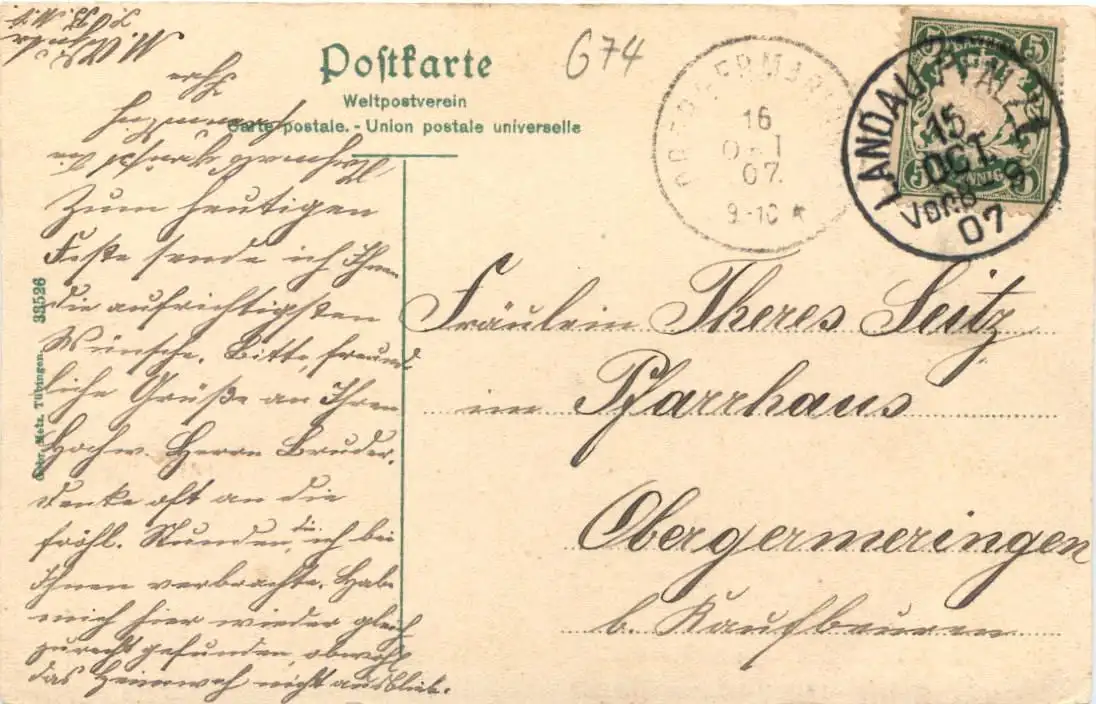 Postkarte
Weltpostverein
Carte postale. - Union postale universelle
674
16
OCT
07.
9-10
LANDAU PFALZ
15
OCT
VORM 8-9
07
5
5
5
PFENNIG
Zum heutigen
Feste sende ich Ihnen
die aufrichtigsten
Wünsche. Bitte, freund-
liche Grüße an Ihren
Hochw. Herrn Bruder.
Denke oft an die
fröhl. Stunden, die ich bei
Ihnen verbrachte. Habe
mich hier wieder gleich
zurecht gefunden, obwohl
das Heimweh nicht ausblieb.
Gebr. Metz, Tübingen. 33526
Fräulein Theres Seitz
im Pfarrhaus
Obergermeringen
b. Kaufbeuren